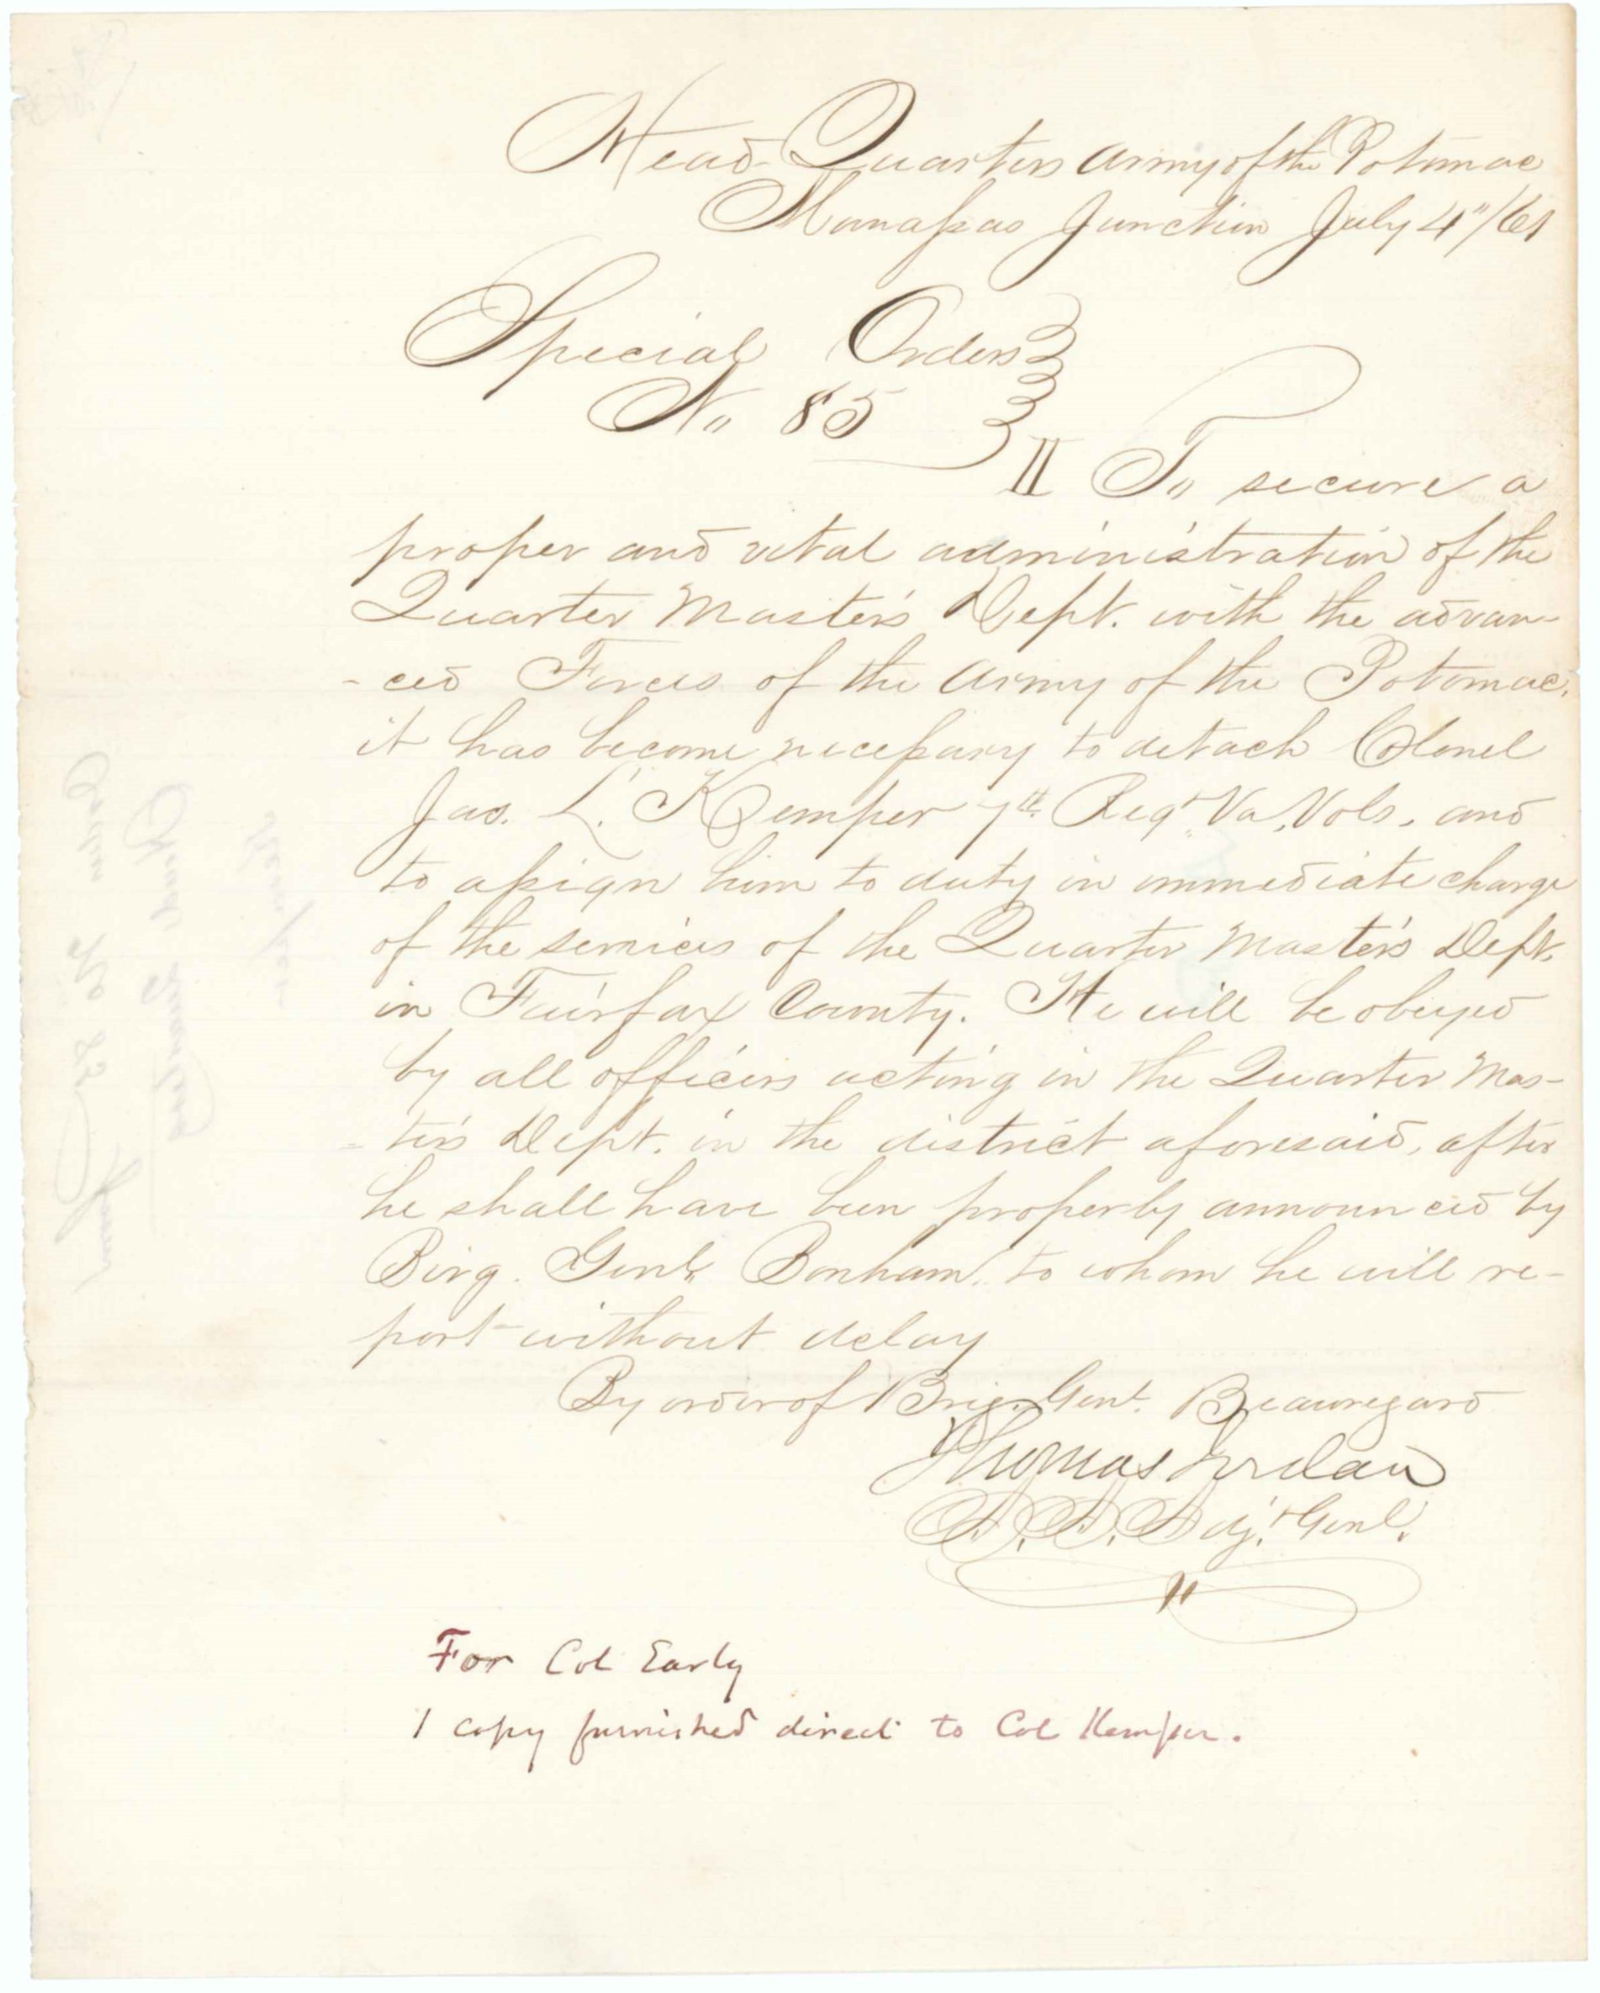 Head Quarters Army of the Potomac
Manassas Junction July 4"/61
Special Orders
No 85
II To secure a
proper and vital administration of the
Quarter Master's Dept. with the advan-
-ced Forces of the Army of the Potomac,
it has become necessary to detach Colonel
Jas. L. Kemper 7th Regt Va. Vols. and
to assign him to duty in immediate charge
of the services of the Quarter Master's Dept.
in Fairfax County. He will be obeyed
by all officers acting in the Quarter Mas-
-ter's Dept. in the district aforesaid, after
he shall have been properly announced by
Birg. Genl. Bonham, to whom he will re-
port without delay
By order of Brig. Genl. Beauregard
Thomas Jordan
A. A. Adjt. Genl.
For Col Early
1 copy furnished direct to Col Kemper.